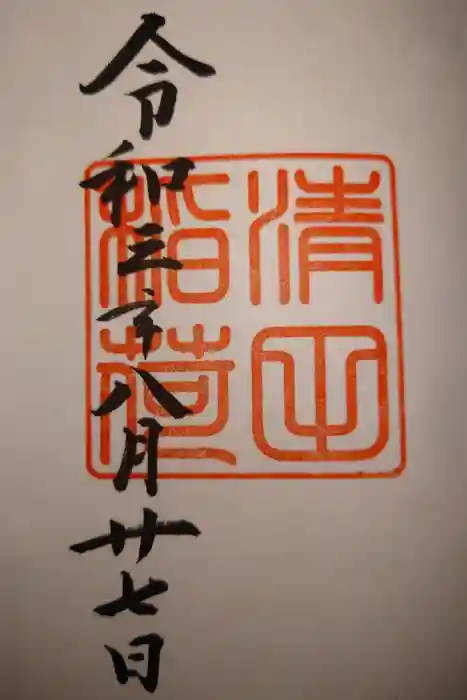 清
稲荷
令和三年八月廿七日